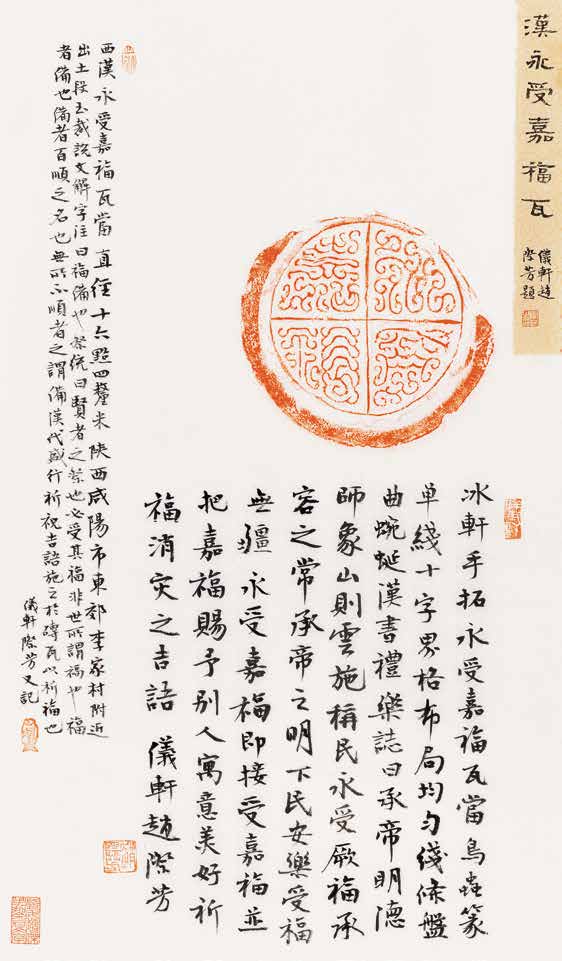 漢永受嘉福瓦
儀軒趙
際芳題
冰軒手拓永受嘉福瓦當鳥蟲篆
單綫十字界格布局均勻綫條盤
曲蜿蜒漢書禮樂誌曰承帝明德
師象山則雲施稱民永受厥福承
容之常承帝之明下民安樂受福
無疆永受嘉福即接受嘉福並
把嘉福賜予別人寓意美好祈
福消灾之吉語 儀軒趙際芳
西漢永受嘉福瓦當直徑十六點四釐米陝西咸陽市東郊李家村附近
出土段玉裁說文解字注曰福備也祭統曰賢者之祭也必受其福非世所謂福也福
者備也備者百順之名也無所不順者之謂備漢代盛行祈祝吉語施之於磚瓦以祈福也
儀軒際芳又記